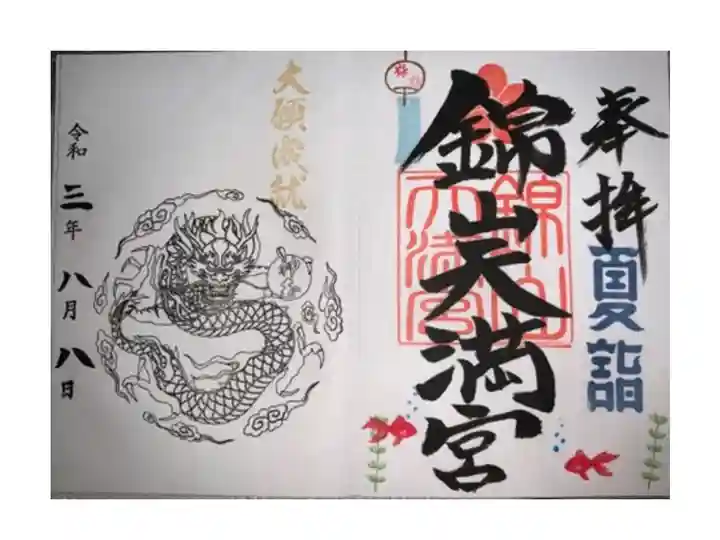 奉拝
夏詣
錦山天満宮
錦山
天満宮
大願成就
令和三年八月八日